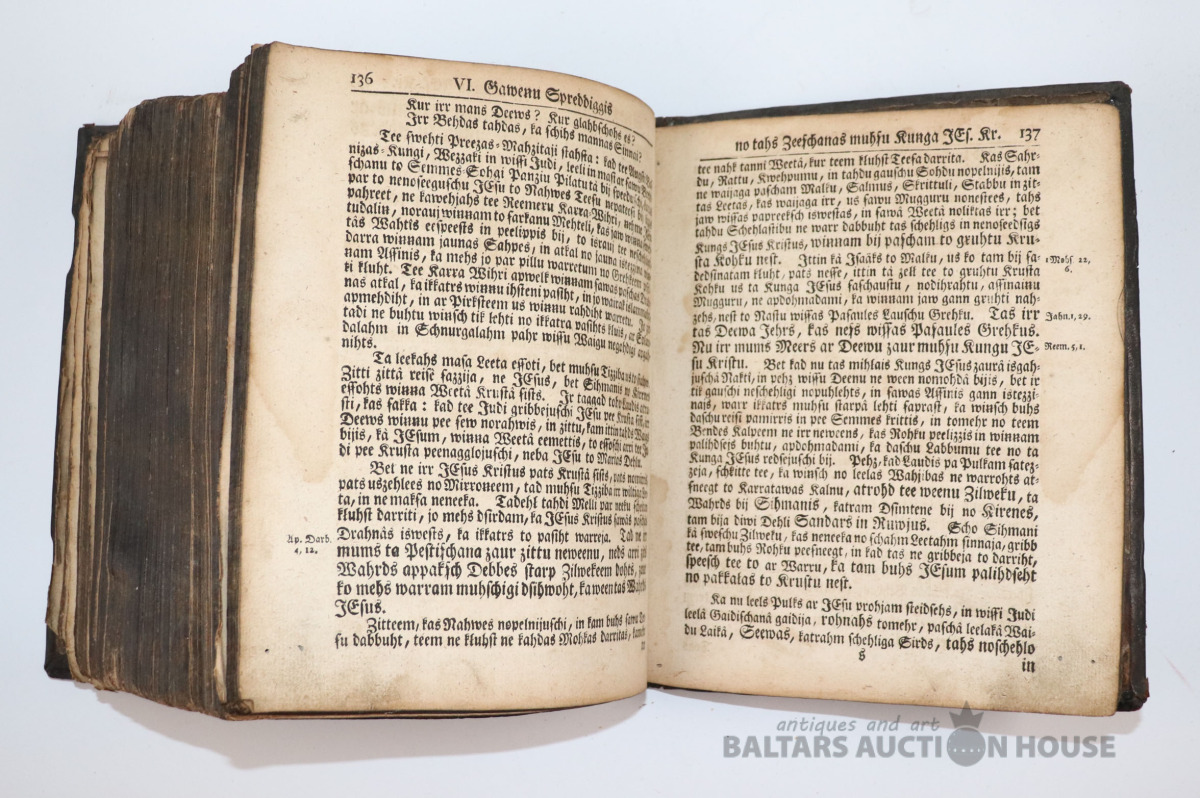 136
VI. Gawenu Spreddiggis
Kur irr mans Deews? Kur glahbschohs es?
Irr Behdas tahdas, ka schihs mannas Sinnai?
Tee ſwehti Preezas-Mahzitaji ſtahſta: kad tee
nizas-Kungi, Wezzaki in wiſſi Judi, leeli in maſi ar
ſchanu to Semmes Sohgi Panziu Pilatutà bij
par to nenoſeeguſchu JEſu to Nahwes Teeſu
pahreet, ne kawehjahs tee Reemeru Karra-Wihri,
tudalin, norauj winnam to ſarkanu Mehteli, kas jaw
tàs Wahtis eeſpeeſts in peelippis bij, to israuj tee
darra winnam jaunas Sahpes, in atkal no jauna
nam Aſſinis, ka mehs jo par pillu warretum no Grehkeem
ki kluht. Tee Karra Wihri apwelk winnam ſawas
nas atkal, ka ikkatrs winnu ihſteni paſiht, in jo
apmehdiht, in ar Pirkſteem us winnu rahdiht warretu.
tadi ne buhtu winſch tik lehti no ikkatra paſihts kluis,
dalahm in Schnurgalahm pahr wiſſu Waigu
nihts.
Ta leekahs maſa Leeta eſſoti, bet muhſu Tizziba
Zitti zittà reiſe ſazzija, ne JEſus, bet Sihmanis
eſſohts winna Weetà Kruſtà ſiſts. Jr taggad
ſti, kas ſakka: kad tee Judi gribbejuſchi JEſu pee Kruſta
Deews winnu pee ſew norahwis, in zittu, kam
bijis, kà JEſum, winna Weetà eemettis, to
di pee Kruſta peenagglojuſchi, neba JEſu to Marias Dehlu.
Bet ne irr JEſus Kriſtus pats Kruſtà ſiſts,
pats uszehlees no Mirroneem, tad muhſu Tizziba irr
ta, in ne makſa neneeka. Tadeht tahdi Melli par
kluhſt darriti, jo mehs dſirdam, ka JEſus Kriſtus ſawàs
Drahnàs isweſts, ka ikkatrs to paſiht warreja.
mums ta Peſtiſchana zaur zittu neweenu, neds arri
Wahrds appakſch Debbes ſtarp Zilwekeem dohts,
ko mehs warram muhſchigi dſihwoht, ka ween tas
JEſus.
Zitteem, kas Nahwes nopelnijuſchi, in kam buhs
ſu dabbuht, teem ne kluhſt ne kahdas Mohkas darritas,
Ap. Darb.
4, 12.
no tahs Zeeſchanas muhſu Kunga JEſ. Kr. 137
tee nahk tanni Weetà, kur teem kluhſt Teeſa darrita. Kas Sahr-
du, Rattu, Kwehpumu, in tahdu gauſchu Sohdu nopelnijis, tam
ne waijaga paſcham Malku, Salmus, Skrittuli, Stabbu in zit-
tas Leetas, kas waijaga irr, us ſawu Mugguru noneſtees, tahs
jaw wiſſas papreekſch isweſtas, in ſawà Weetà noliktas irr; bet
tahdu Schehlaſtibu ne warr dabbuht tas ſchehligs in nenoſeedſigs
Kungs JEſus Kriſtus, winnam bij paſcham to gruhtu Kru-
ſta Kohku neſt. Jttin kà Jſaàks to Malku, us ko tam bij ſa-
dedſinatam kluht, pats neſſe, ittin tà zell tee to gruhtu Kruſta
Kohku us ta Kunga JEſus ſaſchauſtu, nodihrahtu, aſſinainu
Mugguru, ne apdohmadami, ka winnam jaw gann gruhti nah-
zehs, neſt to Naſtu wiſſas Paſaules Lauſchu Grehku. Tas irr
tas Deewa Jehrs, kas neſs wiſſas Paſaules Grehkus.
Nu irr mums Meers ar Deewu zaur muhſu Kungu JE-
ſu Kriſtu. Bet kad nu tas mihlais Kungs JEſus zaurà isgah-
juſchà Nakti, in pehz wiſſu Deenu ne ween nomohdà bijis, bet ir
tik gauſchi neſchehligi nopuhlehts, in ſawas Aſſinis gann istezzi-
najs, warr ikkatrs muhſu ſtarpà lehti ſapraſt, ka winſch buhs
daſchu reiſi pamirris in pee Semmes krittis, in tomehr no teem
Bendes Kalpeem ne irr neweens, kas Rohku peelizzis in winnam
palihdſejs buhtu, apdohmadami, ka daſchu Labbumu tee no ta
Kunga JEſus redſejuſchi bij. Pehz, kad Laudis pa Pulkam ſatez-
zeja, ſchkitte tee, ka winſch no leelas Wahjibas ne warrohts at-
ſneegt to Karratawas Kalnu, atrohd tee weenu Zilweku, ta
Wahrds bij Sihmanis, katram Dſimtene bij no Kirenes,
tam bija diwi Dehli Sandars in Ruwjus. Scho Sihmani
kà ſweſchu Zilweku, kas neneeka no ſchahm Leetahm ſinnaja, gribb
tee, tam buhs Rohku peeſneegt, in kad tas ne gribbeja to darriht,
ſpeeſch tee to ar Warru, ka tam buhs JEſum palihdſeht
no pakkalas to Kruſtu neſt.
Ka nu leels Pulks ar JEſu prohjam ſteidſehs, in wiſſi Judi
leelà Gaidiſchanà gaidija, rohnahs tomehr, paſchà leelakà Wai-
du Laikà, Seewas, katrahm ſchehliga Sirds, tahs noſchehlo
S
in
1 Mohſ. 22,
6.
Jahn. 1, 29.
Reem. 5, 1.
antiques and art
BALTARS AUCTION HOUSE